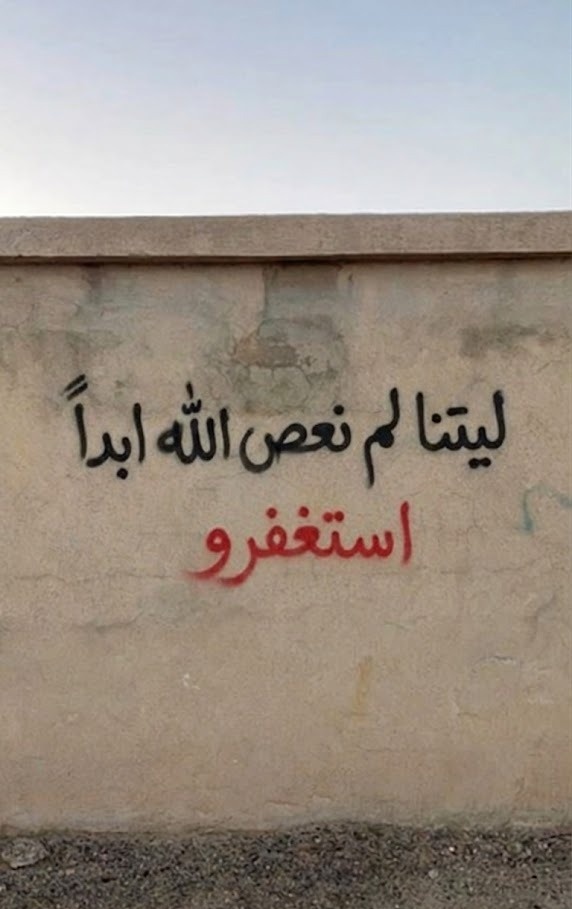 ليتنا لم نعص الله ابداً
استغفرو